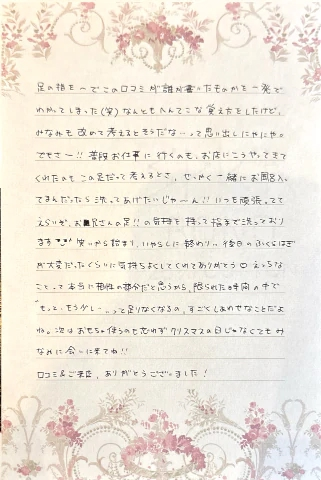 足の指を〜でこの口コミが誰が書いたものかを一発で
わかってしまった(笑)なんともへんてこな覚え方をしたけど、
みなみも改めて考えるとそうだな…って思い出しにやにや。
でもさー!!普段お仕事に行くのも、お店にこうやってきて
くれたのもこの足だって考えるとさ、せっかく一緒にお風呂入っ
てるんだったら洗ってあげたいじゃーん!!いつも頑張ってて
えらいぞ、お兄さんの足!!の気持ちを持って指まで洗っており
ます 笑いから始まり、いやらしく終わり…後日のふくらはぎ
が大変だったくらいに気持ちよくしてくれてありがとう♡えっちな
ことって本当に相性の部分だと思うから、限られた時間の中で
“もっと、もう少し…”って足りなくなるの、すごくしあわせなことだよ
ね。次はおもちゃ使うのも忘れずクリスマスの日じゃなくてもみ
なみに会いに来てね!!
口コミ&ご来店、ありがとうございました!